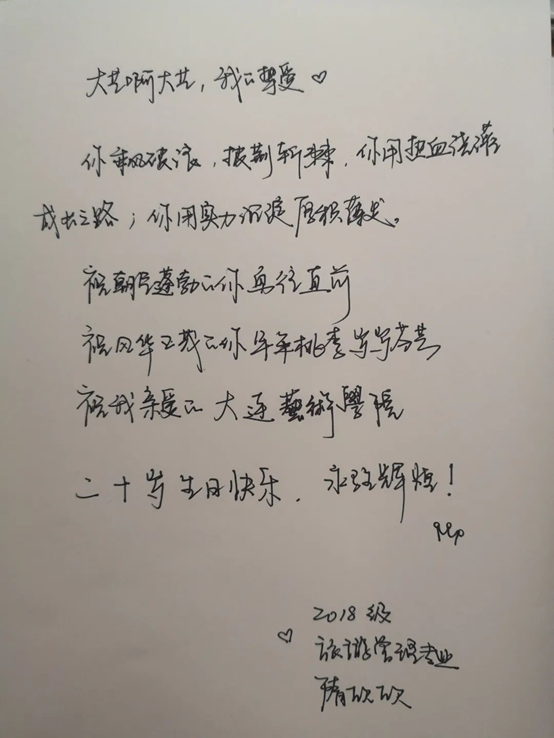 大艺啊大艺，我的挚爱♡
你乘风破浪，披荆斩棘，你用热血浇灌
成长之路；你用实力沉淀厚积薄发。
祝朝气蓬勃的你勇往直前
祝风华正茂的你年年桃李岁岁芬芳
祝我亲爱的大连藝術學院
二十岁生日快乐，永铸辉煌！
♡ 2018级
旅游管理专业
隋欣欣